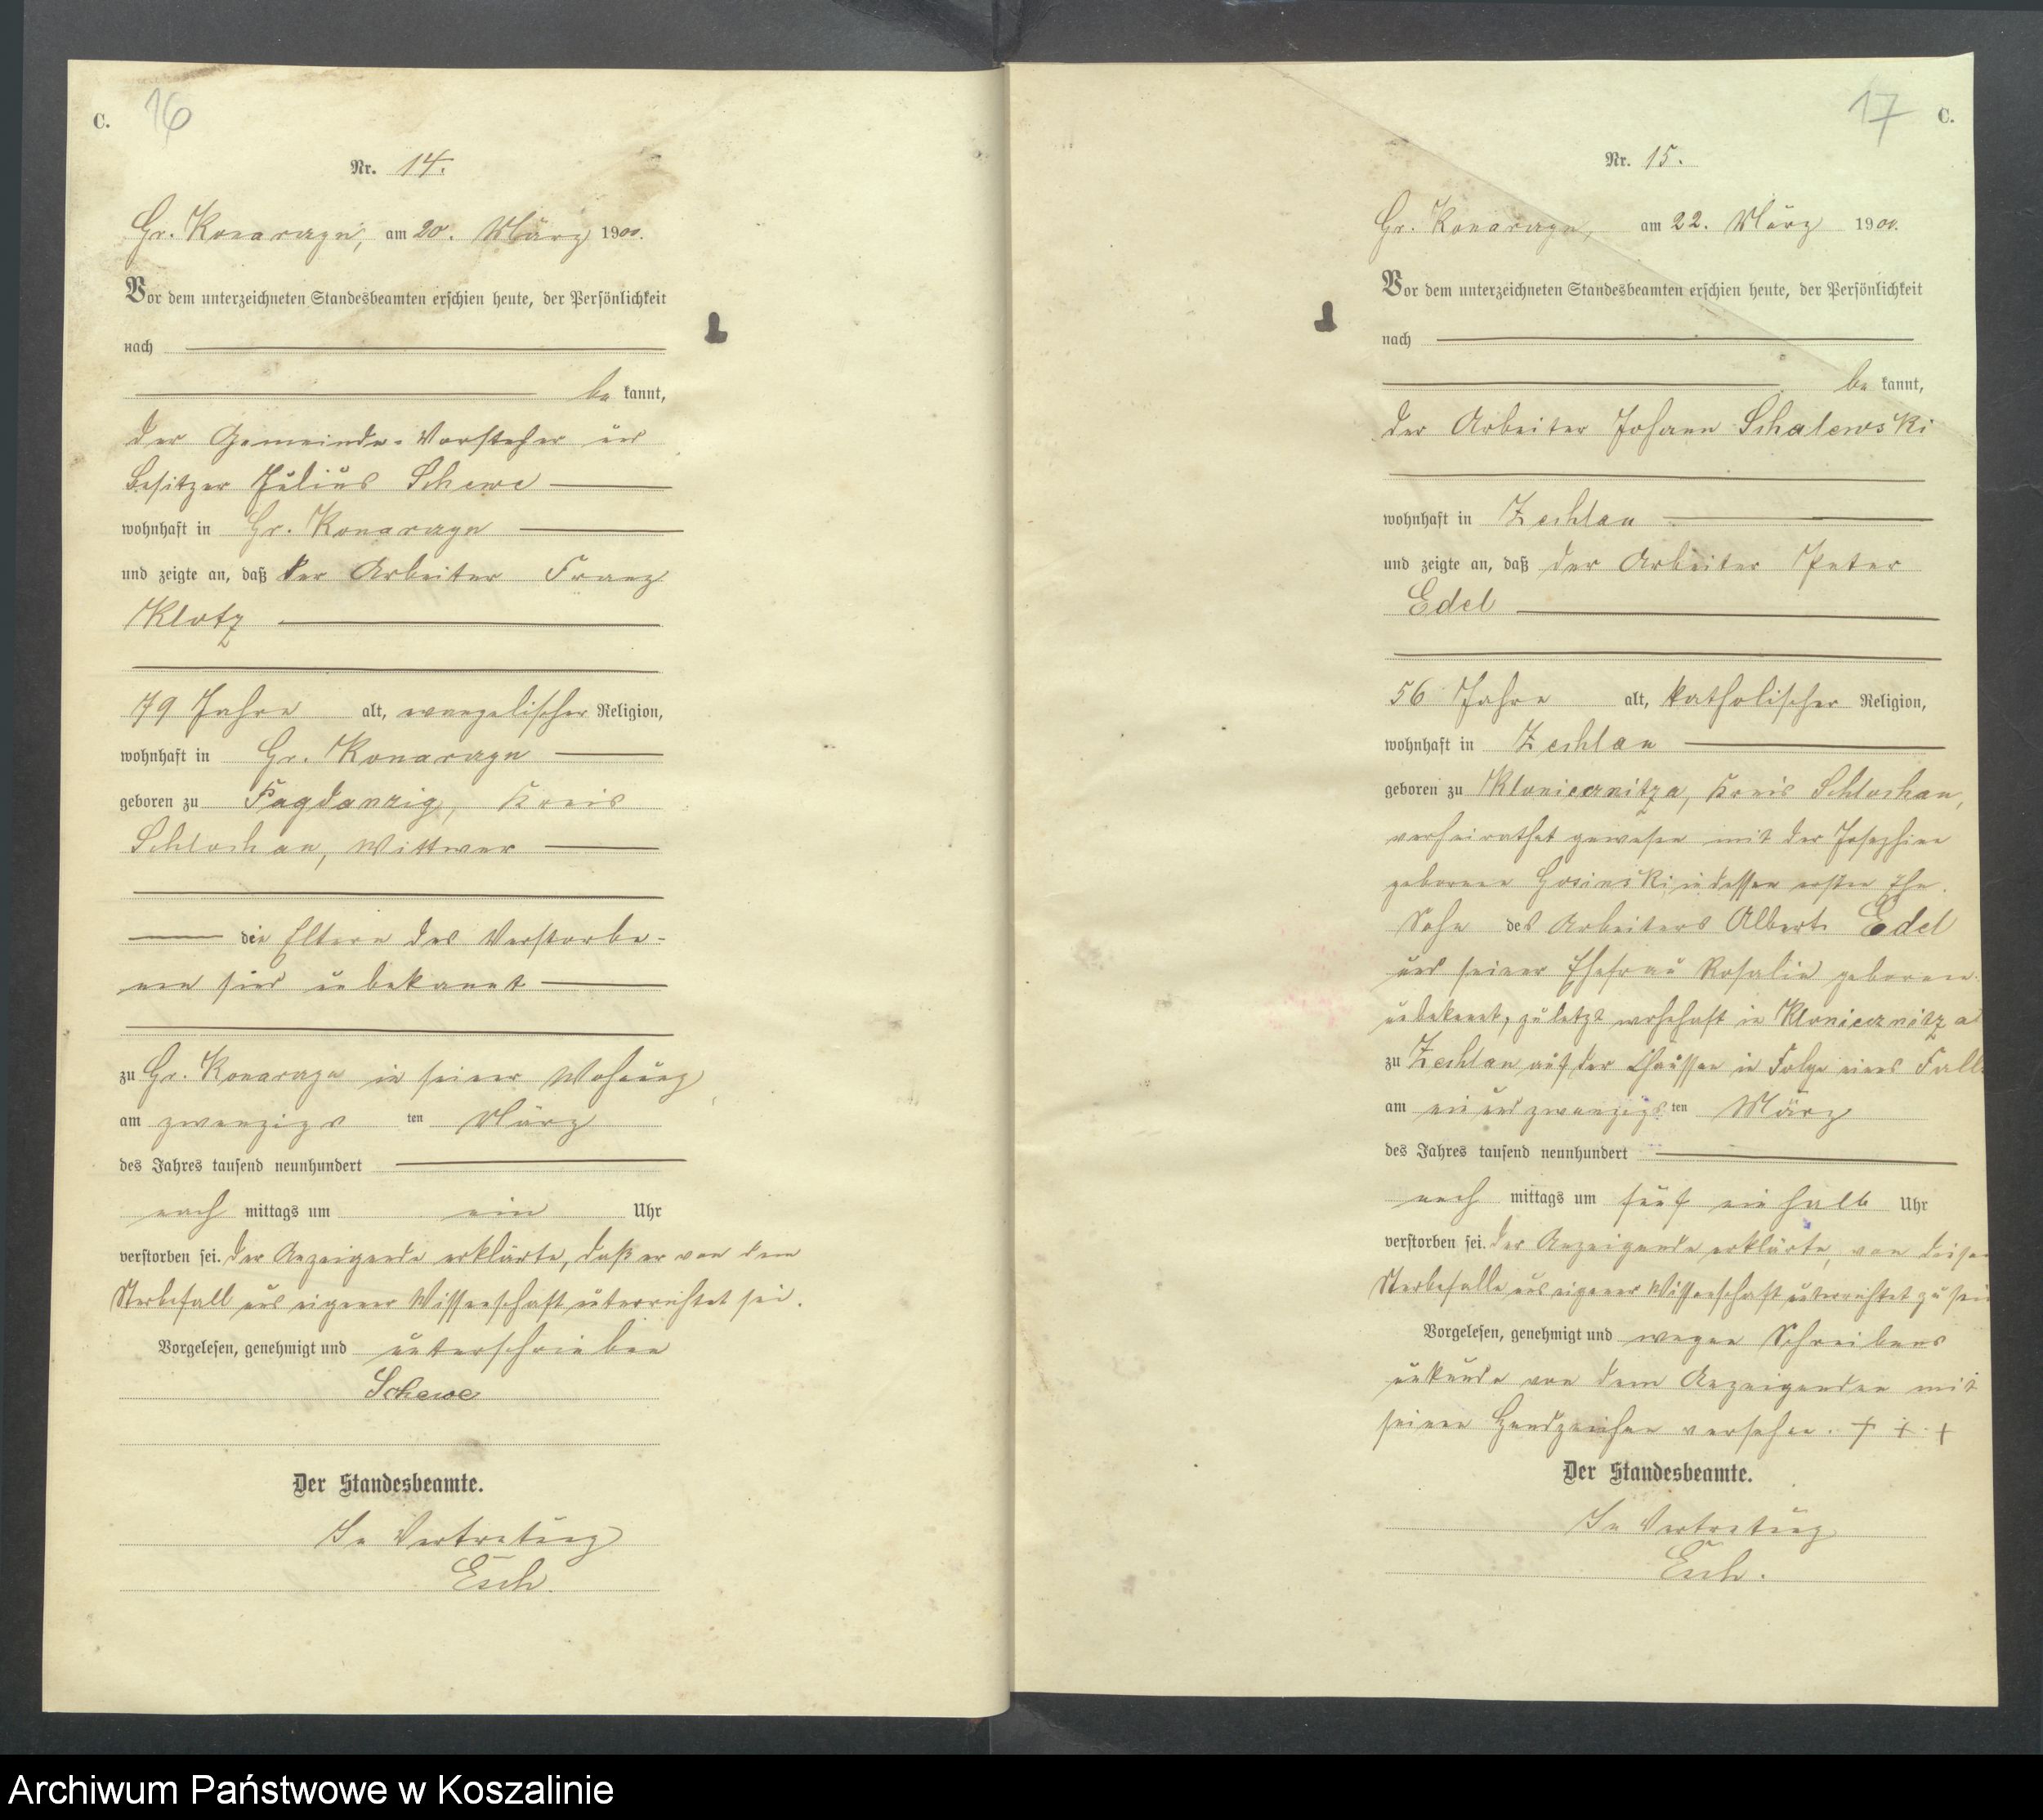 C. 16
Nr. 14.
Gr. Konarzyn, am 20. März 1900.
Vor dem unterzeichneten Standesbeamten erschien heute, der Persönlichkeit
nach
be kannt,
der Gemeinde-Vorsteher und
Besitzer Julius Schewe
wohnhaft in Gr. Konarzyn
und zeigte an, daß der Arbeiter Franz
Klotz
79 Jahre alt, evangelischer Religion,
wohnhaft in Gr. Konarzyn
geboren zu Sagdanzig, Kreis
Schlochau, Wittwer
die Eltern des Verstorbe-
nen sind unbekannt
zu Gr. Konarzyn in seiner Wohnung
am zwanzigs ten März
des Jahres tausend neunhundert
nach mittags um ein Uhr
verstorben sei. Der Anzeigende erklärte, daß er von dem
Sterbefall aus eigener Wissenschaft unterrichtet sei.
Vorgelesen, genehmigt und unterschrieben
Schewe
Der Standesbeamte.
In Vertretung
Esch.
17 C.
Nr. 15.
Gr. Konarzyn, am 22. März 1900.
Vor dem unterzeichneten Standesbeamten erschien heute, der Persönlichkeit
nach
be kannt,
der Arbeiter Johann Schalewski
wohnhaft in Zechlau
und zeigte an, daß der Arbeiter Peter
Edel
56 Jahre alt, katholischer Religion,
wohnhaft in Zechlau
geboren zu Kloniecznitza, Kreis Schlochau,
verheirathet gewesen mit der Josephine
geborene Gosinski in dessen erster Ehe.
Sohn des Arbeiters Albert Edel
und seiner Ehefrau Rosalie geborene
unbekannt, zuletzt wohnhaft in Kloniecznitza
zu Zechlau auf der Chaussee in Folge eines Falls
am ein und zwanzigs ten März
des Jahres tausend neunhundert
nach mittags um fünf ein halb Uhr
verstorben sei. Der Anzeigende erklärte, von diesem
Sterbefalle aus eigener Wissenschaft unterrichtet zu sein
Vorgelesen, genehmigt und wegen Schreibens
unkunde von dem Anzeigenden mit
seinen Handzeichen versehen. + + +
Der Standesbeamte.
In Vertretung
Esch.
Archiwum Państwowe w Koszalinie